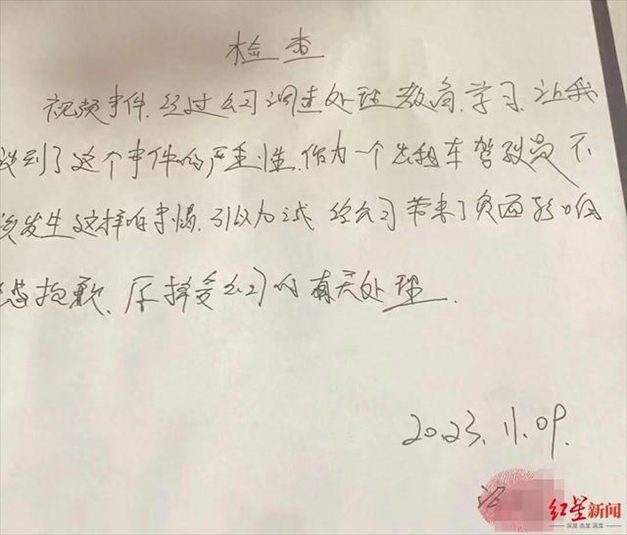 检查
视频事件,经过公司调查处理教育,学习,让我
识到了这个事件的严重性,作为一个出租车驾驶员不
该发生这样的事情,引以为戒 给公司带来了负面影响
感抱歉,愿接受公司的有关处理.
2023.11.09.
江
红星新闻
深度 态度 温度